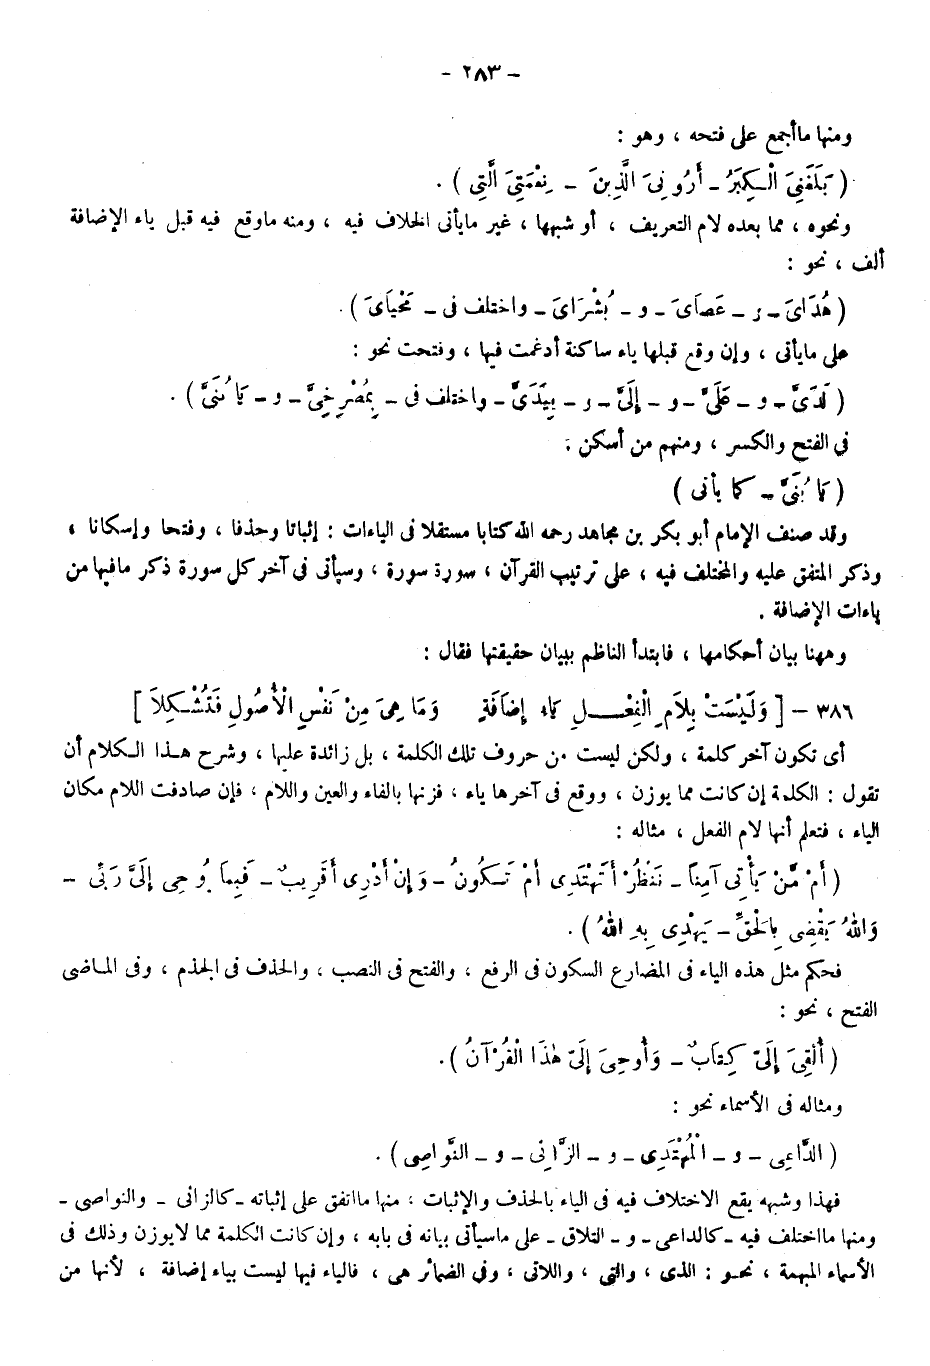 - ٢٨٣ -
ومنها ماأجمع على فتحه ، وهو :
( بَلَغَنِىَ الْكِبَرُ - أَرُونِىَ الَّذِينَ - نِعْمَتِىَ الَّتِى ) .
ونحوه ، مما بعده لام التعريف ، أو شبهها ، غير مايأتى الخلاف فيه ، ومنه ماوقع فيه قبل ياء الإضافة
ألف ، نحو :
( هُدَاىَ - و - عَصَاىَ - و - بُشْرَاىَ - واختلف فى - مَحْيَاىَ ) .
على مايأتى ، وإن وقع قبلها ياء ساكنة أدغمت فيها ، وفتحت نحو :
( لَدَىَّ - و - عَلَىَّ - و - إِلَىَّ - و - بِيَدَىَّ - واختلف فى - بِمُصْرِخِىَّ - و - يَا بُنَىَّ ) .
فى الفتح والكسر ، ومنهم من أسكن :
( يَا بُنَىَّ - كما يأتى )
وقد صنف الإمام أبو بكر بن مجاهد رحمه الله كتابا مستقلا فى الياءات : إثباتا وحذفا ، وفتحا وإسكانا ،
وذكر المتفق عليه والمختلف فيه ، على ترتيب القرآن ، سورة سورة ، وسيأتى فى آخر كل سورة ذكر مافيها من
ياءات الإضافة .
وههنا بيان أحكامها ، فابتدأ الناظم ببيان حقيقتها فقال :
٣٨٦ - [ وَلَيْسَتْ بِلَامِ الْفِعْلِ يَاءُ إِضَافَةٍ وَمَا هِىَ مِنْ نَفْسِ الْأُصُولِ فَتُشْكِلَا ]
أى تكون آخر كلمة ، ولكن ليست من حروف تلك الكلمة ، بل زائدة عليها ، وشرح هذا الكلام أن
تقول : الكلمة إن كانت مما يوزن ، ووقع فى آخرها ياء ، فزنها بالفاء والعين واللام ، فإن صادفت اللام مكان
الياء ، فتعلم أنها لام الفعل ، مثاله :
( أَمْ مَّنْ يَأْتِى آمِنًا - نَنْظُرْ أَتَهْتَدِى أَمْ تَكُونُ - وَإِنْ أَدْرِى أَقَرِيبٌ - فَبِمَا يُوحِى إِلَىَّ رَبِّى -
وَاللهُ يَقْضِى بِالْحَقِّ - يَهْدِى بِهِ اللهُ ) .
فحكم مثل هذه الياء فى المضارع السكون فى الرفع ، والفتح فى النصب ، والحذف فى الجذم ، وفى الماضى
الفتح ، نحو :
( أُلْقِىَ إِلَىَّ كِتَابٌ - وَأُوحِىَ إِلَىَّ هٰذَا الْقُرْآنُ ) .
ومثاله فى الأسماء نحو :
( الدَّاعِى - و - الْمُهْتَدِى - و - الزَّانِى - و - النَّوَاصِى ) .
فهذا وشبهه يقع الاختلاف فيه فى الياء بالحذف والإثبات ، منها مااتفق على إثباته - كالزانى - والنواصى -
ومنها مااختلف فيه - كالداعى - و - التلاق - على ماسيأتى بيانه فى بابه ، وإن كانت الكلمة مما لايوزن وذلك فى
الأسماء المبهمة ، نحو : الذى ، والتى ، واللاتى ، وفى الضمائر هى ، فالياء فيها ليست بياء إضافة ، لأنها من